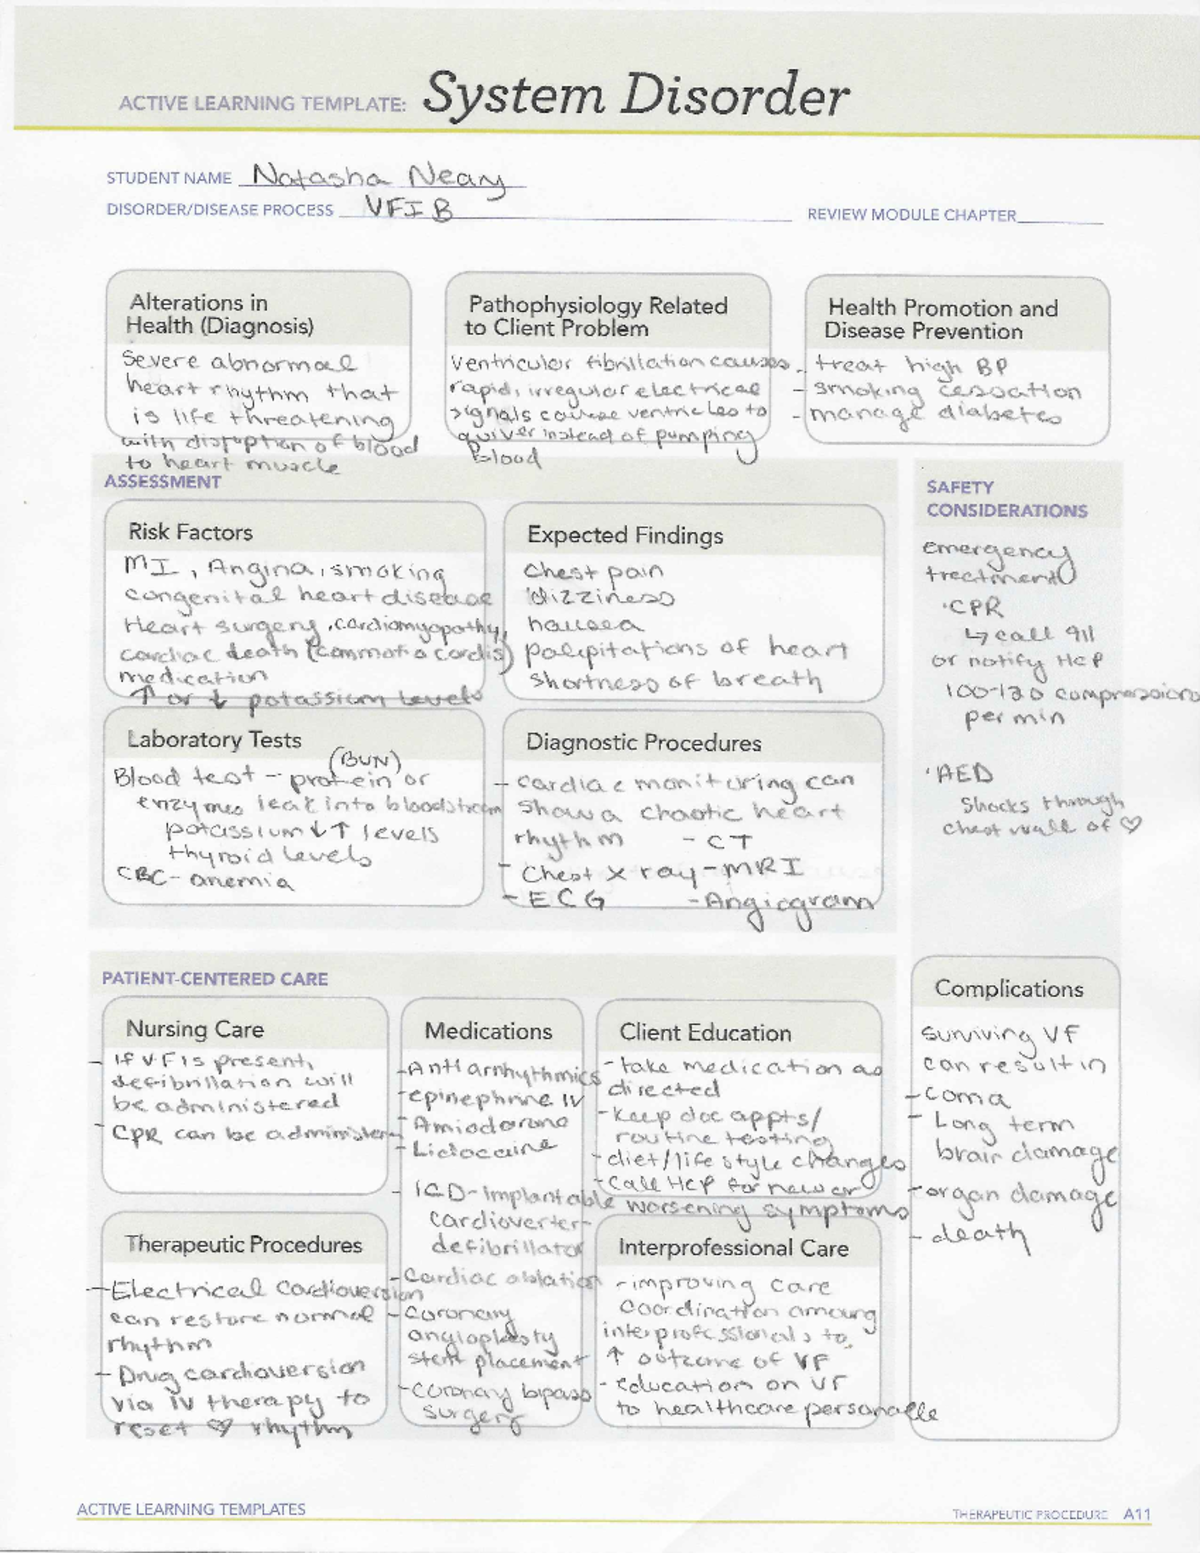 ACTIVE LEARNING TEMPLATE: System Disorder
STUDENT NAME Natasha Neary
DISORDER/DISEASE PROCESS VFIB
REVIEW MODULE CHAPTER
Alterations in
Health (Diagnosis)
Severe abnormal
heart rhythm that
is life threatening
with disruption of blood
to heart muscle
Pathophysiology Related
to Client Problem
Ventricular fibrillation causes
rapid, irregular electrical
signals cause ventricles to
quiver instead of pumping
Blood
Health Promotion and
Disease Prevention
- treat high BP
- smoking cessation
- manage diabetes
ASSESSMENT
Risk Factors
MI, Angina, smoking
congenital heart disease
Heart surgery, cardiomyopathy,
cardiac death (commotio cordis)
medication
↑ or ↓ potassium levels
Expected Findings
Chest pain
dizziness
nausea
palipitations of heart
shortness of breath
SAFETY
CONSIDERATIONS
emergency
treatment
·CPR
↳ call 911
or notify HCP
100-120 compressions
per min
·AED
Shocks through
chest wall of ♡
Laboratory Tests
(BUN)
Blood test - protein or
enzymes leak into bloodstream
potassium ↓↑ levels
thyroid levels
CBC- anemia
Diagnostic Procedures
- cardiac monitoring can
show a chaotic heart
rhythm - CT
- Chest x ray - MRI
- ECG - Angiogram
PATIENT-CENTERED CARE
Nursing Care
- If VF is present,
defibrillation will
be administered
- CPR can be administer
Medications
- Antiarrhythmics
- epinephrine IV
- Amiodarone
- Lidocaine
- ICD-implantable
cardioverter-
defibrillator
- Cardiac ablation
- Coronary
angioplasty
stent placement
- coronary bipass
surgery
Client Education
- take medication as
directed
- keep doc appts/
routine testing
- diet/life style changes
- Call HCP for new or
worsening symptoms
Complications
surviving VF
can result in
- coma
- Long term
brain damage
- organ damage
- death
Therapeutic Procedures
- Electrical Cardioversion
can restore normal
rhythm
- Drug cardioversion
via IV therapy to
reset ♡ rhythm
Interprofessional Care
- improving care
coordination among
interprofessionals to
↑ outcome of VF
- education on VF
to healthcare personelle
ACTIVE LEARNING TEMPLATES
THERAPEUTIC PROCEDURE A11